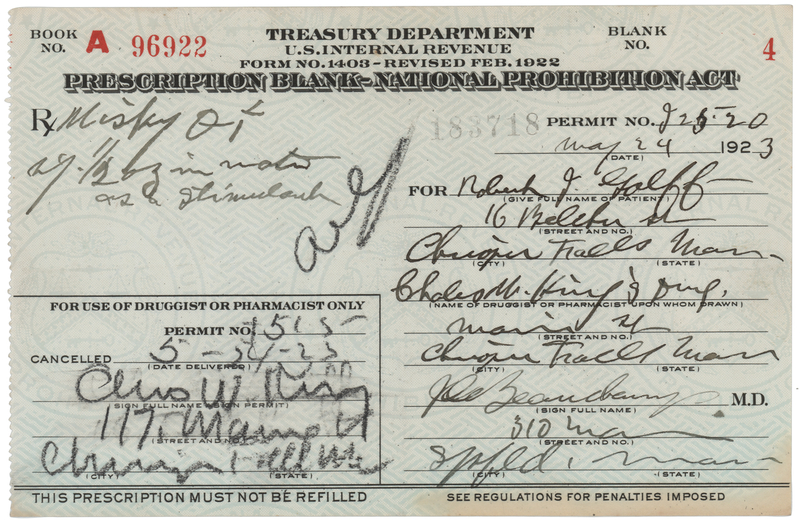 BOOK NO. A 96922
TREASURY DEPARTMENT
U.S. INTERNAL REVENUE
FORM NO. 1403-REVISED FEB. 1922
BLANK NO. 4
PRESCRIPTION BLANK-NATIONAL PROHIBITION ACT
Rx
183718
PERMIT NO.
May 24 1923
(DATE)
as a Stimulant
FOR Robert J.
(GIVE FULL NAME OF PATIENT)
16 Belcher St
(STREET AND NO.)
Falls Mass
(CITY) (STATE)
King's Drug.
(NAME OF DRUGGIST OR PHARMACIST UPON WHOM DRAWN)
Main St
(STREET AND NO.)
Falls Mass
(CITY) (STATE)
Beauchamp M.D.
(SIGN FULL NAME)
310 Main
(STREET AND NO.)
Spfld. Mass
(CITY) (STATE)
FOR USE OF DRUGGIST OR PHARMACIST ONLY
PERMIT NO.
CANCELLED 5-24-23
(DATE DELIVERED)
Chas W. King
(SIGN FULL NAME SIGN PERMIT)
(STREET AND NO.)
(CITY) (STATE)
THIS PRESCRIPTION MUST NOT BE REFILLED
SEE REGULATIONS FOR PENALTIES IMPOSED